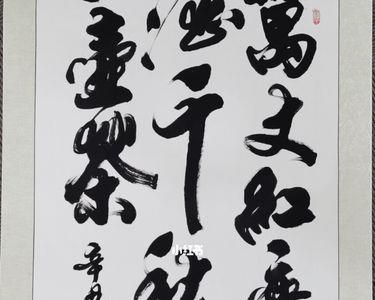 萬丈紅塵
酒千秋
壺茶
辛丑
小红书